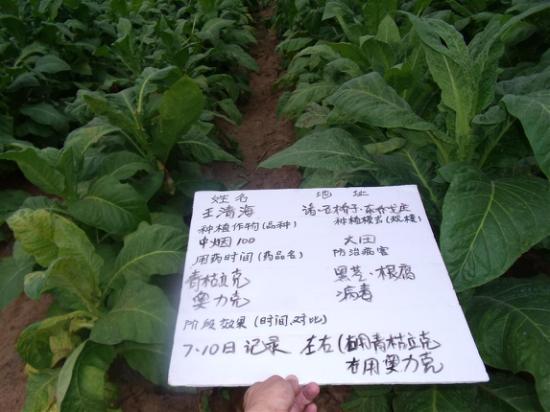 姓名 地址
王清海 诸·石桥子·东
种植作物(品种) 种植模式(规模)
中烟100 大田
用药时间(药品名) 防治病害
青枯立克 黑茎·根腐
奥力克 病毒
阶段效果(时间、对比)
7·10日记录 左右(右用青枯立克
左用奥力克